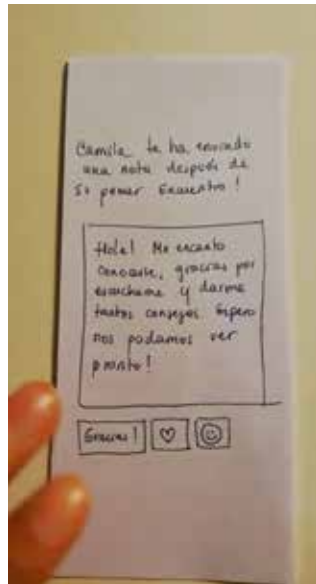 Camila te ha enviado
una nota después de
su primer Encuentro!
Hola! Me encantó
conocerte, gracias por
escucharme y darme
tantos consejos espero
nos podamos ver
pronto!
Gracias!